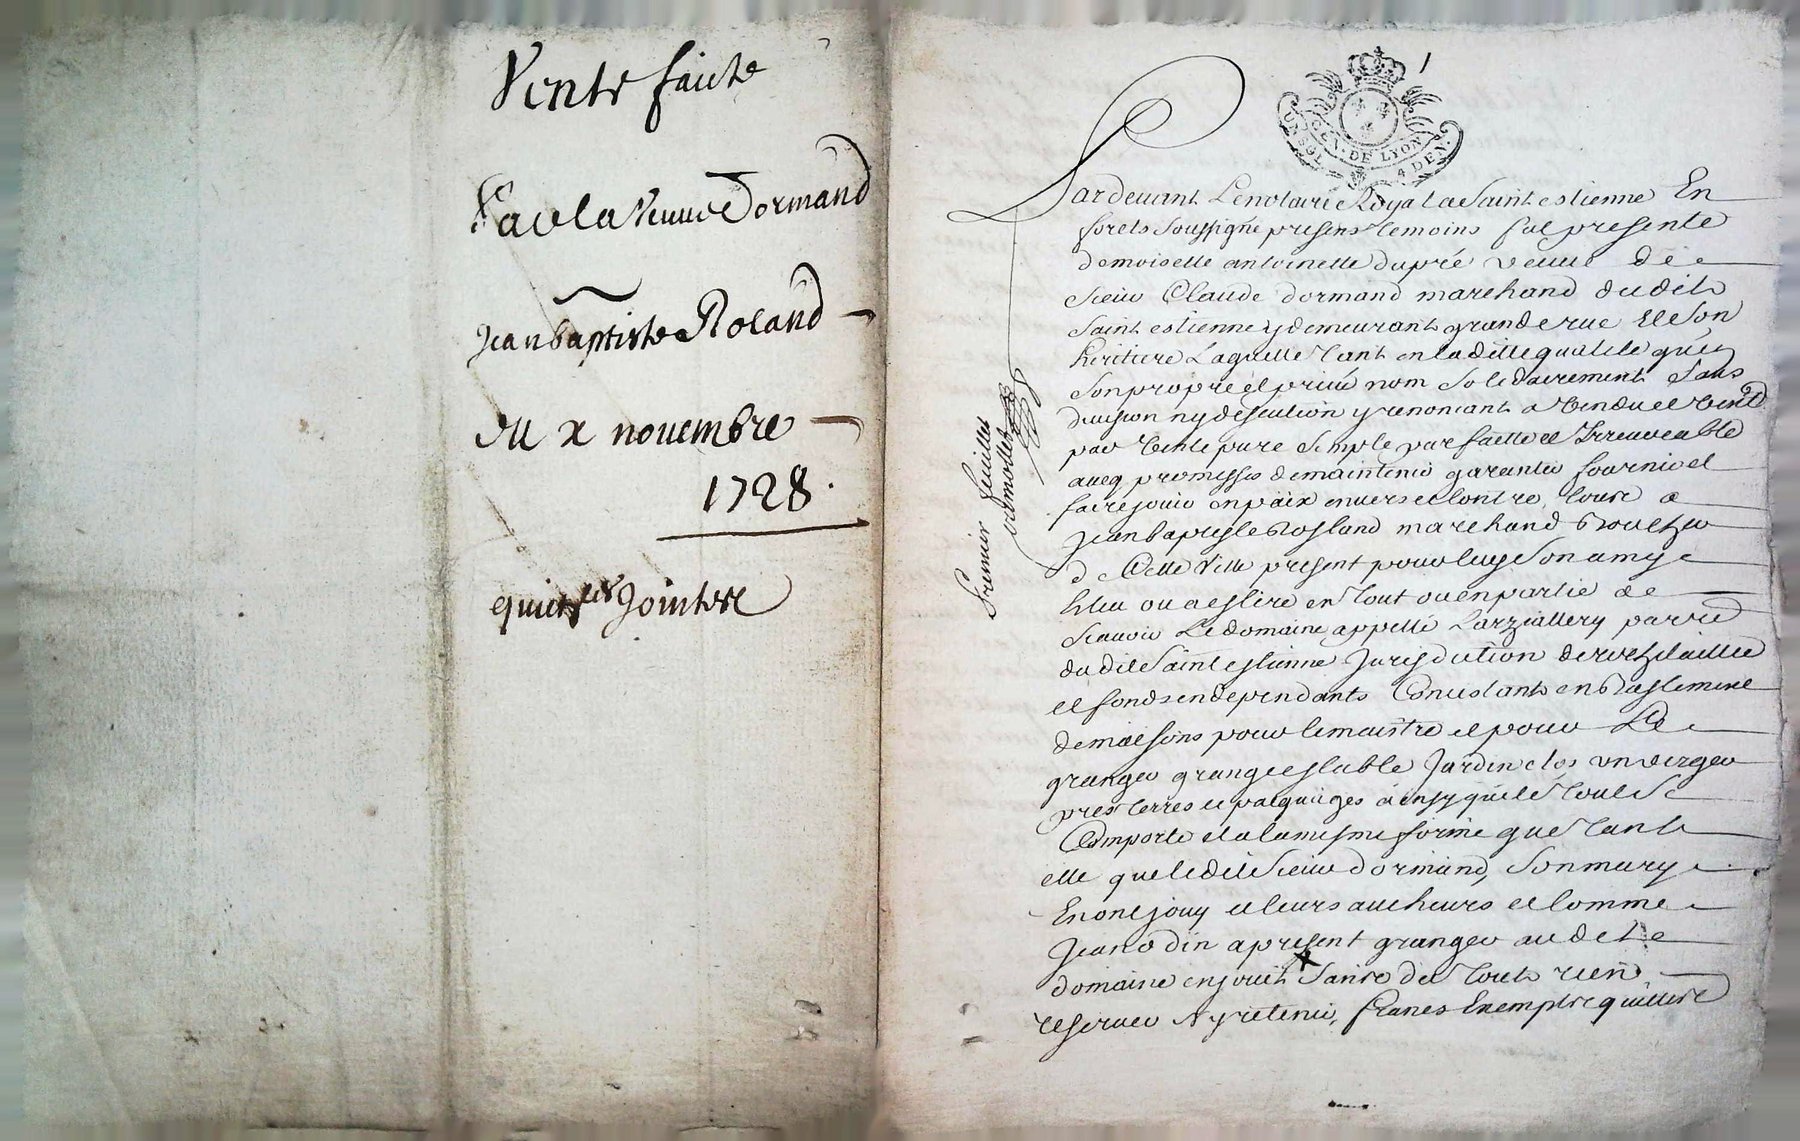 Vente faicte
Par la Veuue Dormand
Jean baptiste Roland
du x novembre
1728.
quict Jointes
1
GEN. DE LYON
UN SOL 4 DEN.
Pardeuant Le notaire Royal a Saint estienne En
forets soussigné presens temoins fut presente
demoiselle antoinette dupré veuue de
sieur Claude dormand marchand dudit
Saint estienne y demeurant grande rue Et son
heritiere Laquelle tant en laditte qualité qu'en
son propre et priué nom solidairement sans
diuision ny discution y renoncant a Vendu et Vend
par Vente pure simple parfaitte et Irreuocable
aueq promesses de maintenir garantir fournir et
faire jouir en paix enuers et Contre tous a
Jean baptiste Rosland marchand
de Cette Ville present pour luy son amy
Eleu ou a eslire en tout ou en partie
scauoir Le domaine appellé Larziallery
dudit Saint estienne Jurisdiction de rochetaillée
et fonds en dependants Consistants en bastiment
de maisons pour le maistre et pour Le
granger grange estable Jardin clos un verger
pres terres et pasquages ainsy que le tout se
Comporte et a la mesme forme que tant
elle que ledit sieur dormand, son mary
En ont jouy et leurs autheurs et Comme
Jean odin a present granger audit
domaine en jouit sans du tout rien
reseruer Ny retenir, francs Exempts quittes
Premier feuillet